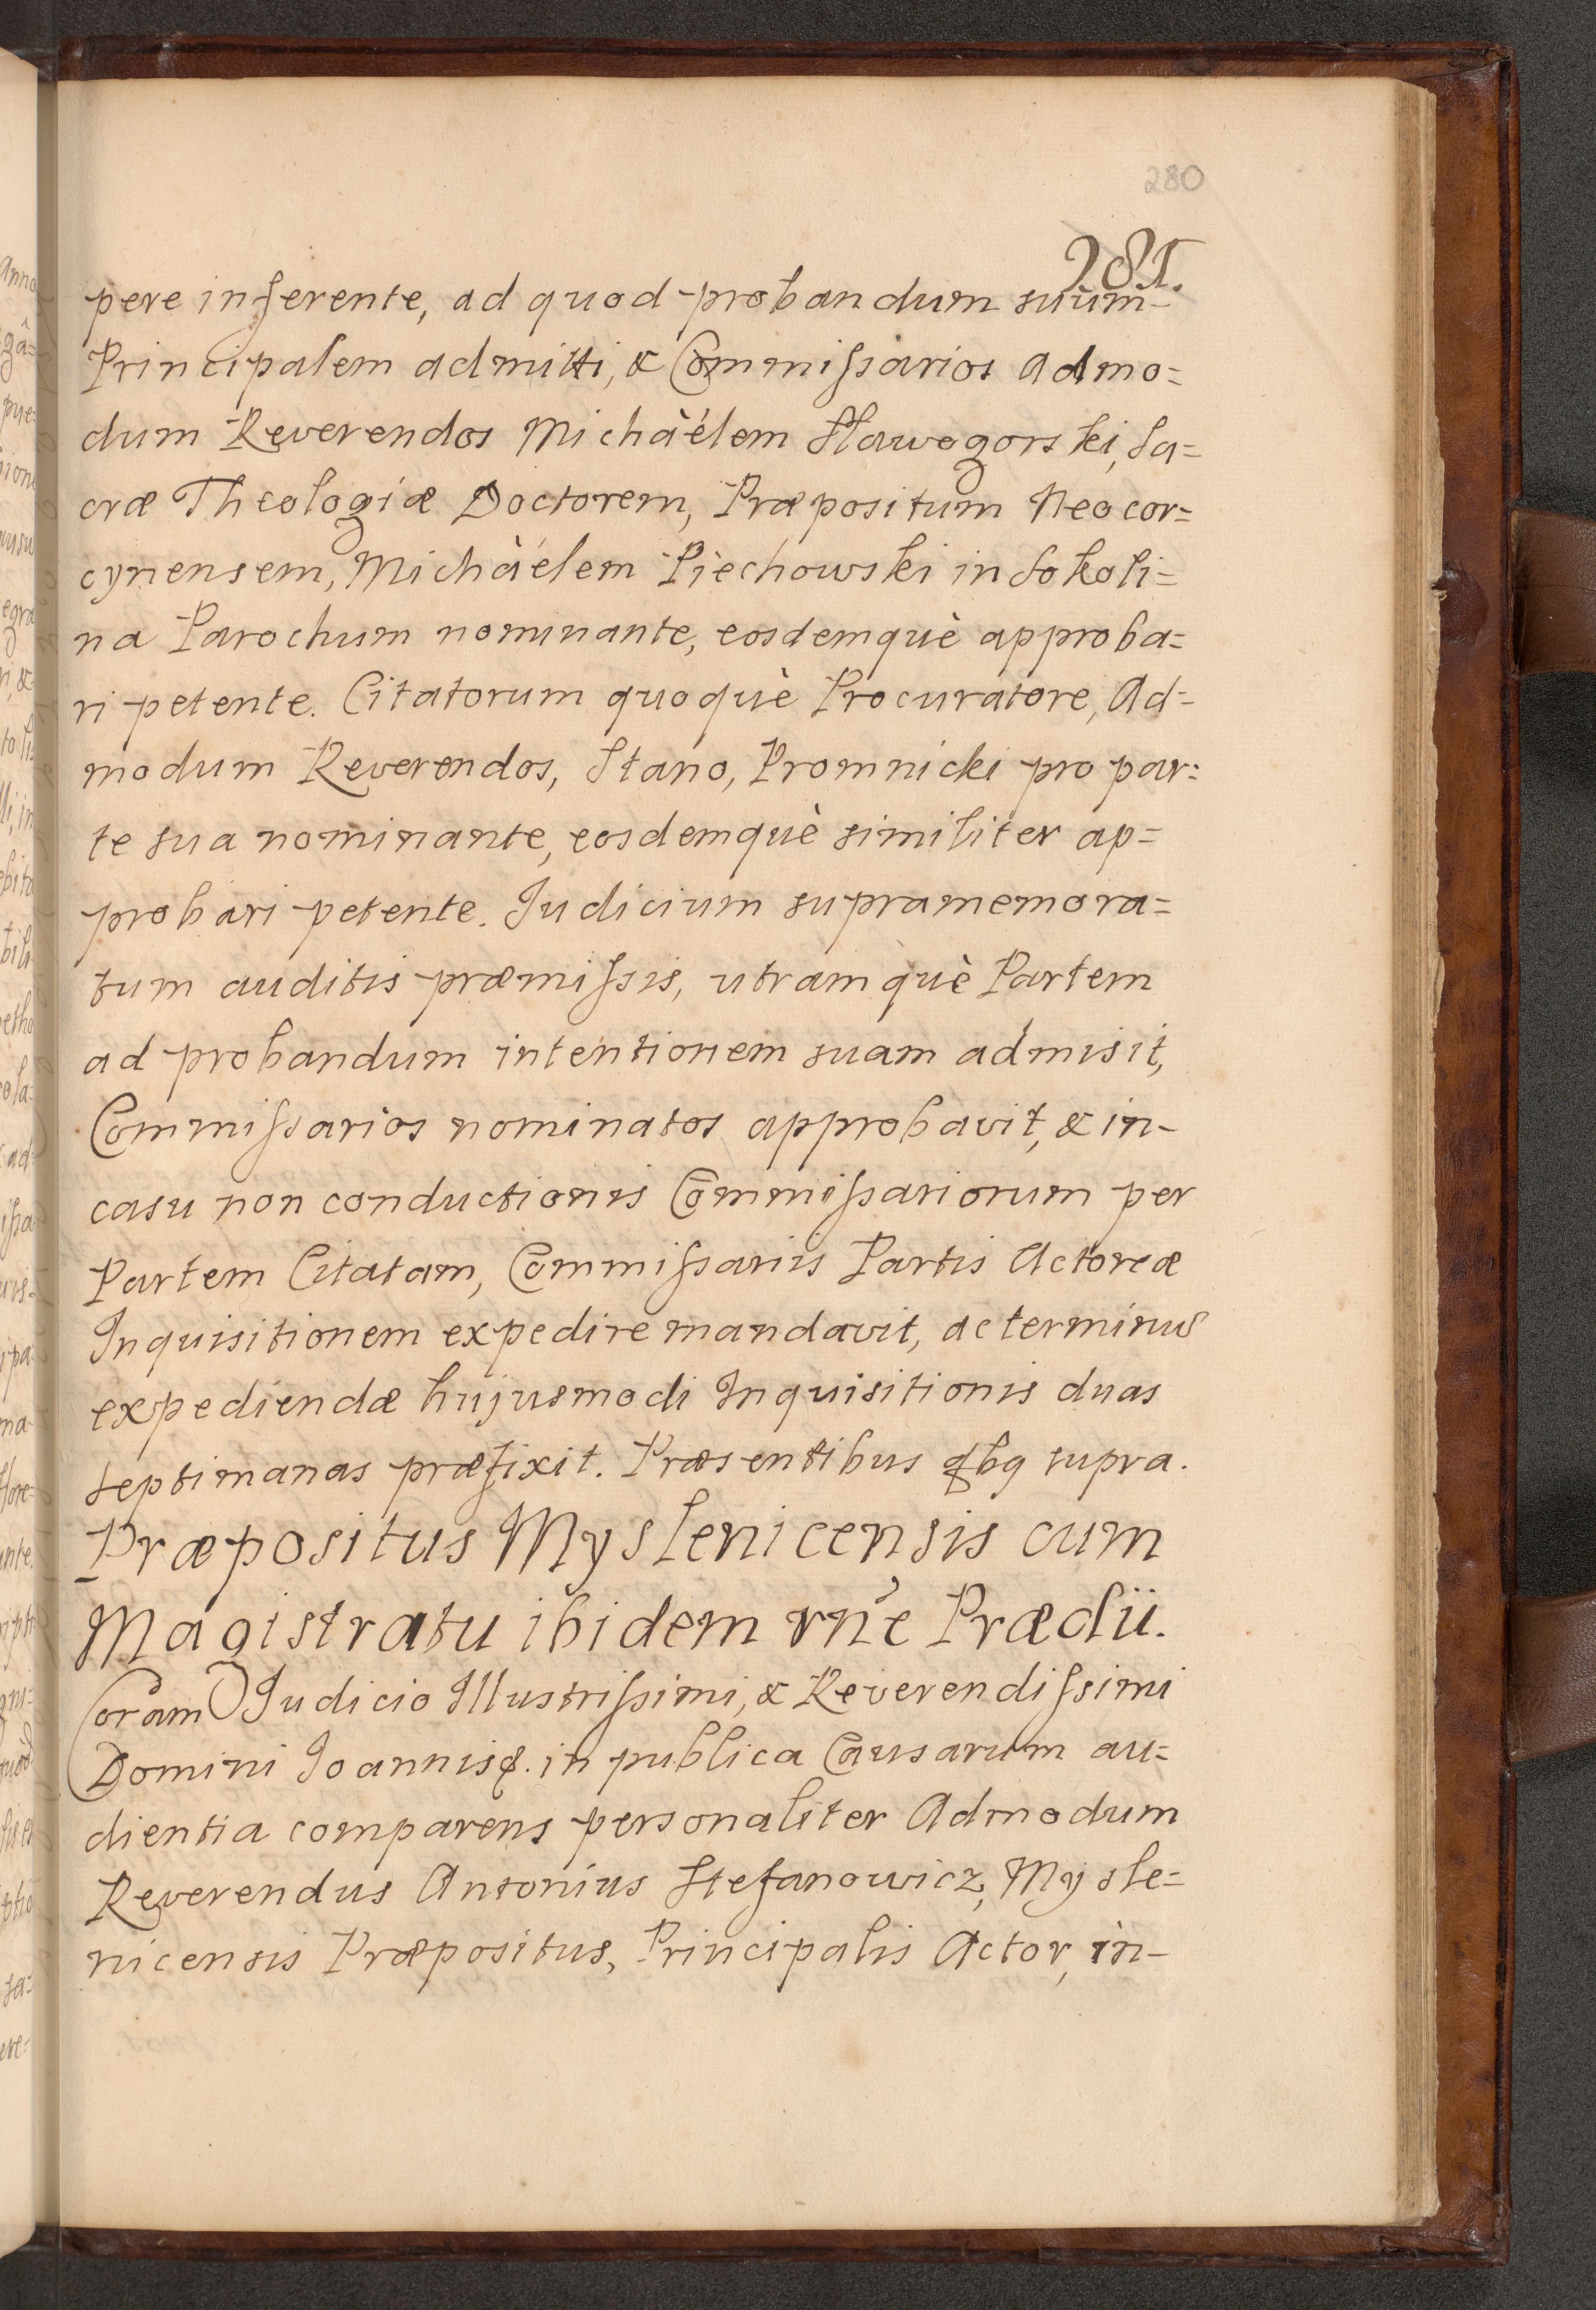 280
281.
pere inferente, ad quod probandum suum
Principalem admitti, & Commiſsarios Admo=
dum Reverendos Michàélem Stawogorski, Sa=
cræ Theologiæ Doctorem, Præpositum Neocor=
cynensem, Michàélem Piechowski in Sokoli=
na Parochum nominante, eosdemquè approba=
ri petente. Citatorum quoquè Procuratore, Ad=
modum Reverendos, Stano, Promnicki pro par=
te sua nominante, eosdemquè similiter ap=
probari petente. Judicium supramemora=
tum auditis præmiſsis, utramquè Partem
ad probandum intentionem suam admisit,
Commiſsarios nominatos approbavit, & in-
casu non conductionis Commiſsariorum per
Partem Citatam, Commiſsariis Partis Actoreæ
Inquisitionem expedire mandavit, ac terminus
expediendæ hujusmodi Inquisitionis duas
septimanas præfixit. Præsentibus qbq supra.
Præpositus Myslenicensis cum
Magistratu ibidem rñe Prædii.
Coram Judicio Illustriſsimi, & Reverendiſsimi
Domini Joannis&. in publica Causarum au=
dientia comparens personaliter Admodum
Reverendus Antonius Stefanowicz, Mysle=
nicensis Præpositus, Principalis Actor, in-